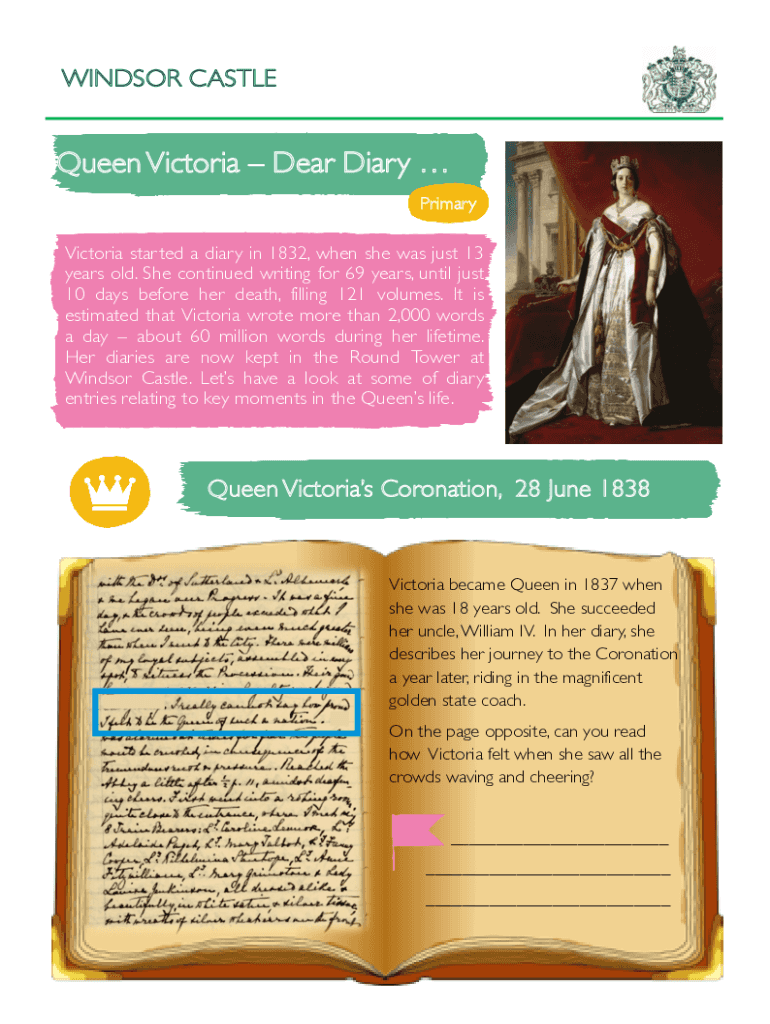 WINDSOR CASTLE
Queen Victoria – Dear Diary …
Primary
Victoria started a diary in 1832, when she was just 13
years old. She continued writing for 69 years, until just
10 days before her death, filling 121 volumes. It is
estimated that Victoria wrote more than 2,000 words
a day – about 60 million words during her lifetime.
Her diaries are now kept in the Round Tower at
Windsor Castle. Let's have a look at some of diary
entries relating to key moments in the Queen's life.
Queen Victoria's Coronation, 28 June 1838
with the Dss. of Sutherland & Ld. Albemarle
& we began our Progress. It was a fine
day, & the crowds of people exceeded what I
have ever seen, being even much greater
than when I went to the City. There were millions
of my loyal subjects, assembled in every
spot, to witness the Procession. Their good
I really cannot say how proud
I felt to be the Queen of such a nation.
was alarmed at times for fear the people
would be crushed, in consequence of the
tremendous rush & pressure. Reached the
Abbey a little after ½ p. 11, amidst deafen-
ing cheers. First went into a robing room,
quite close to the entrance, where I met my
8 Train Bearers: Ly. Caroline Lennox, Ly.
Adelaide Paget, Ly. Mary Talbot, Ly. Fanny
Cowper, Ly. Wilhelmina Stanhope, Ly. Anne
Fitzwilliam, Ly. Mary Grimston & Lady
Louisa Jenkinson, all dressed alike &
beautifully, in white satin & silver tissue,
with wreaths of silver wheatears on the front,
Victoria became Queen in 1837 when
she was 18 years old. She succeeded
her uncle, William IV. In her diary, she
describes her journey to the Coronation
a year later, riding in the magnificent
golden state coach.
On the page opposite, can you read
how Victoria felt when she saw all the
crowds waving and cheering?